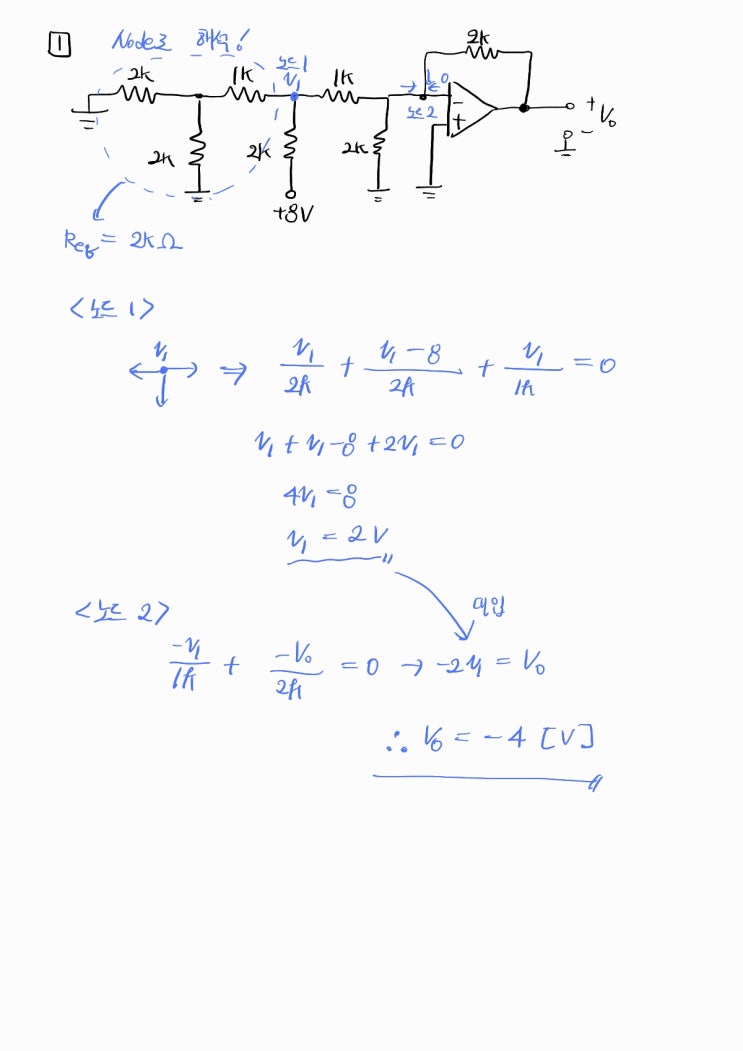 1 Node로 해석!
2k
2k
1k
노드 1
V₁
1k
2k
2k
2k
0
노드 2
-
+
+
V₀
-
+8V
Req = 2kΩ
<노드 1>
V₁ ⇒ V₁/2k + (V₁-8)/2k + V₁/1k = 0
V₁ + V₁-8 + 2V₁ = 0
4V₁ = 8
V₁ = 2V
<노드 2>
대입
-V₁/1k + -V₀/2k = 0 → -2V₁ = V₀
∴ V₀ = -4 [V]